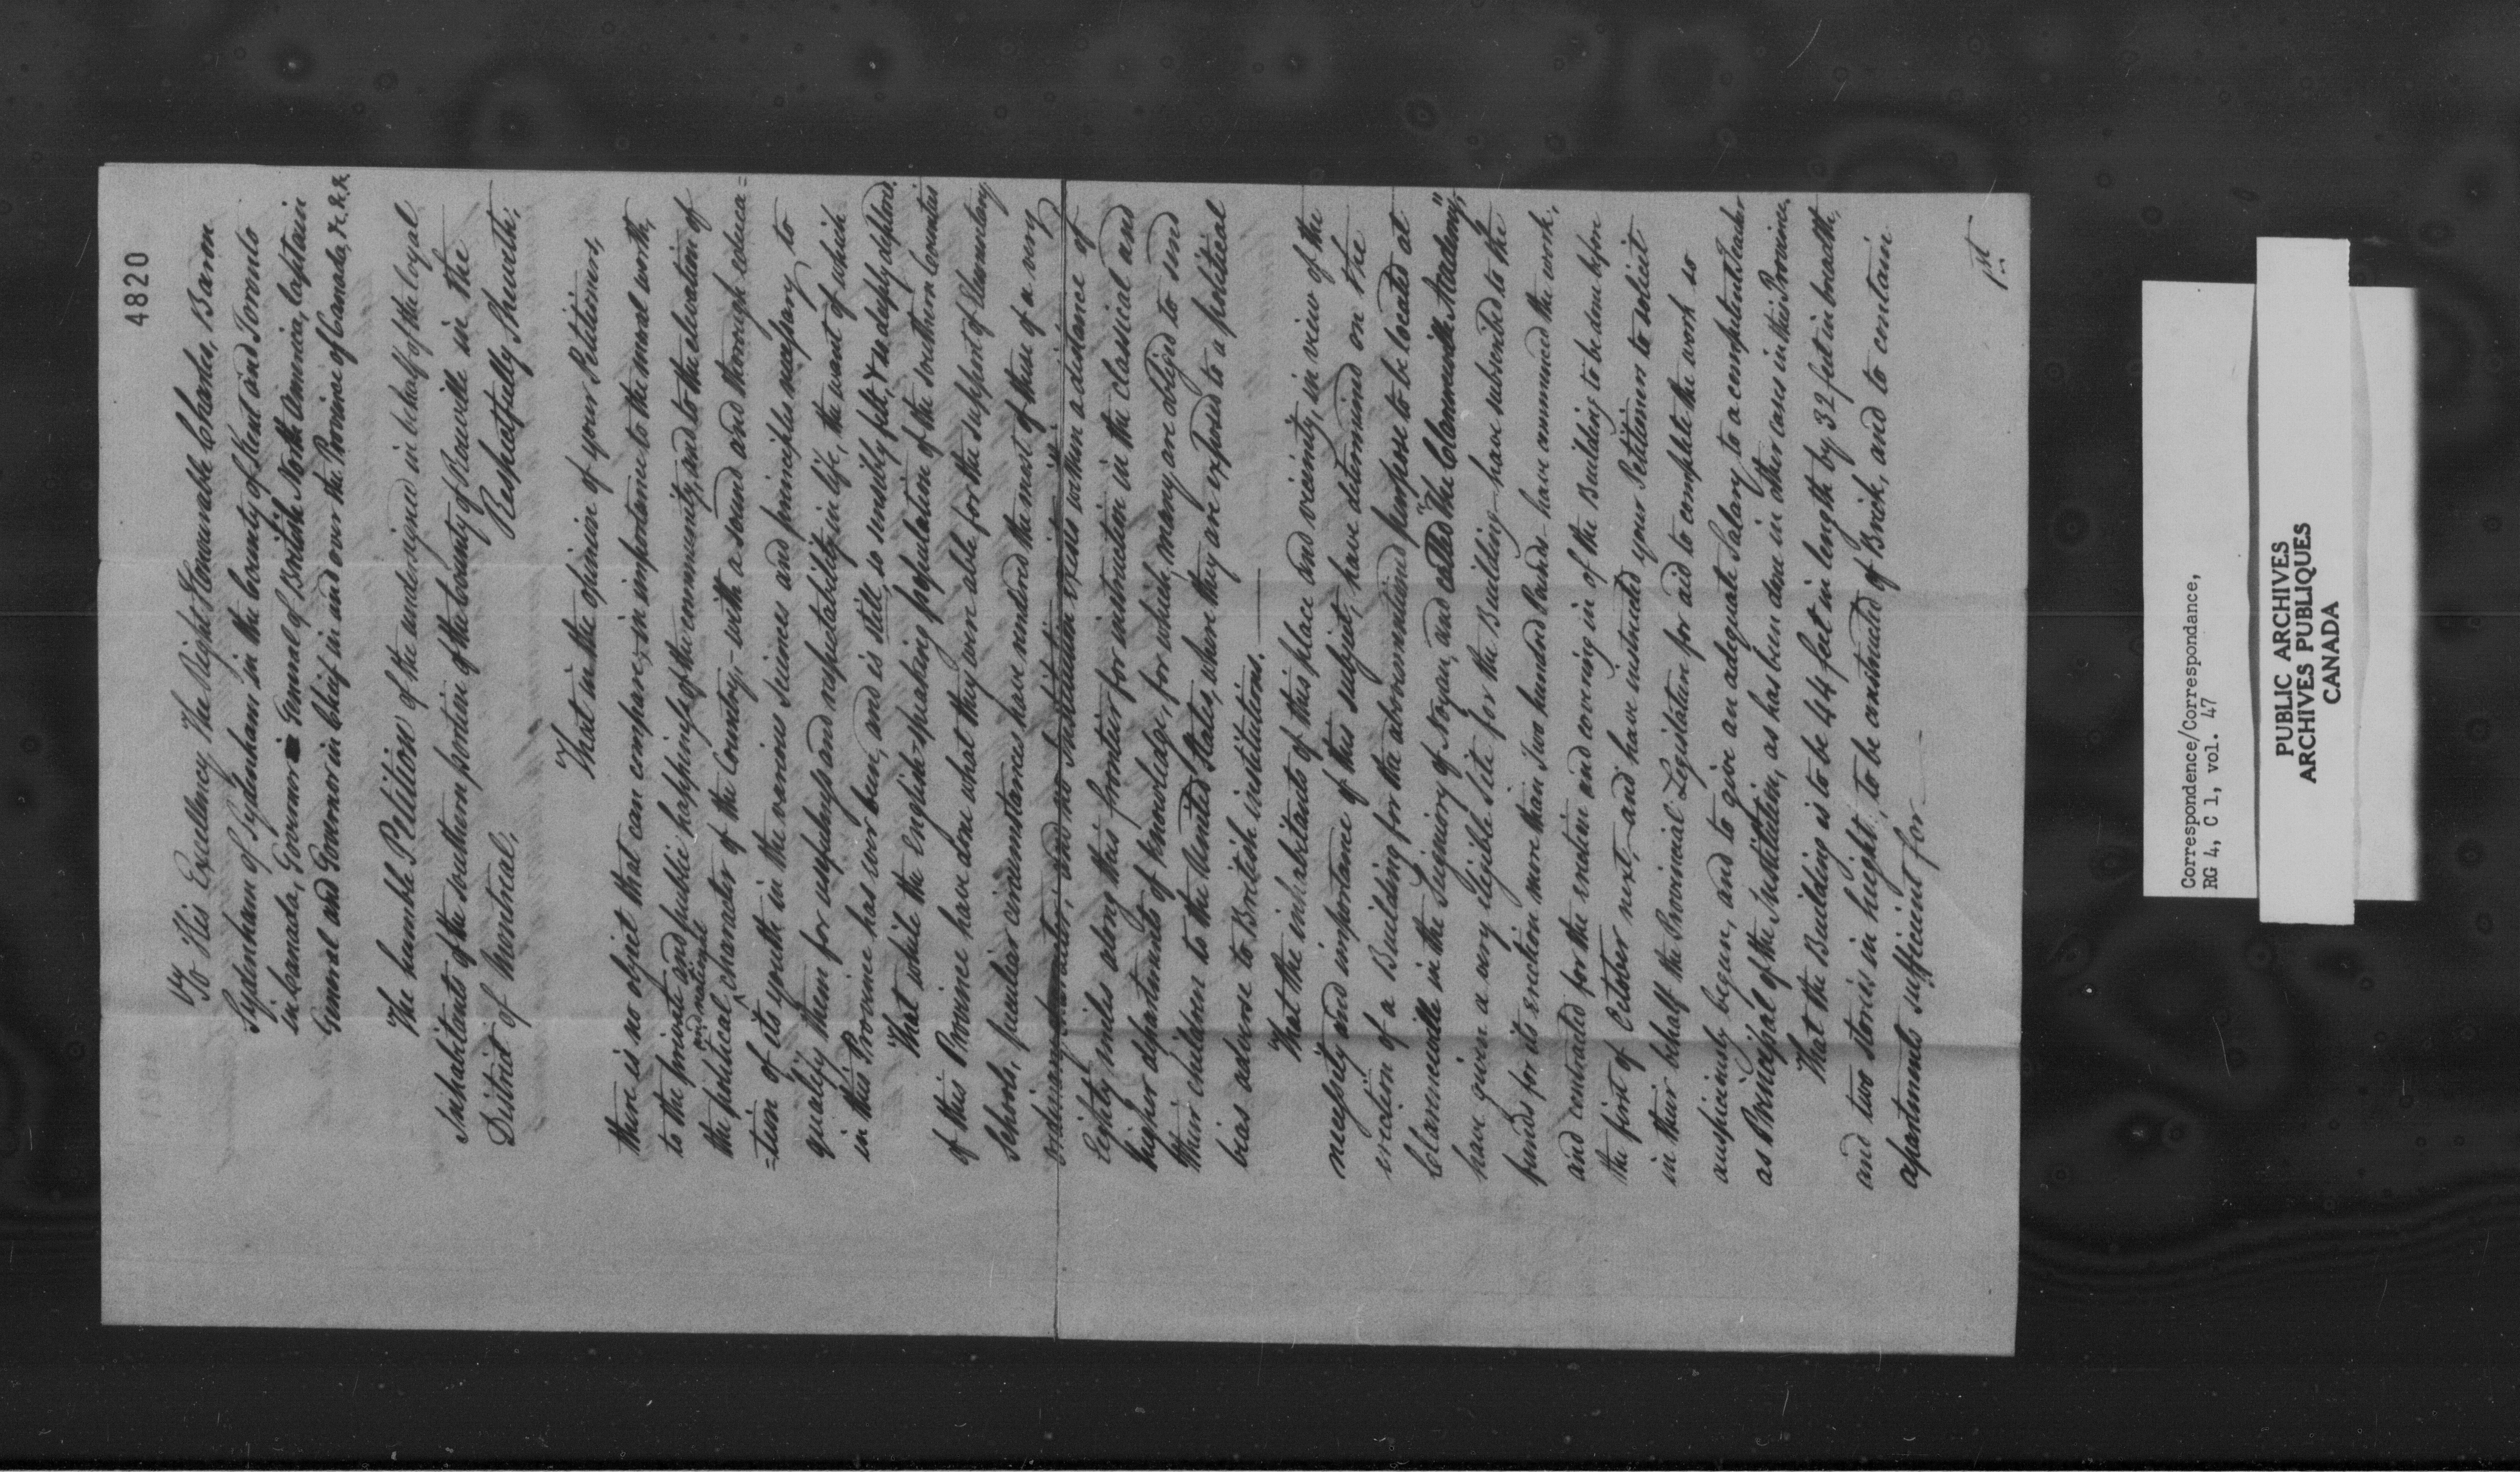 4820
To His Excellency The Right Honourable Charles, Baron
Sydenham of Sydenham in the County of Kent and Toronto
in Canada, Governor General of British North America, Captain
General and Governor in Chief in and over the Province of Canada, &c. &c. &c.
The humble Petition of the undersigned in behalf of the loyal
Inhabitants of the southern portion of the County of Rouville in the
District of Montreal,
Respectfully Sheweth;
That in the opinion of your Petitioners,
there is no object that can compare, in importance to the moral worth,
to the private and public happiness of the community, and to the elevation of
and national
the political ^ character of the Country, with a sound and thorough educa=
=tion of its youth in the various sciences and principles necessary to
qualify them for usefulness and respectability in life, the want of which
in this Province has ever been, and is still, so sensibly felt, & so deeply deplored.
That while the English-speaking population of the southern Counties
of this Province have done what they were able for the support of Elementary
Schools, peculiar circumstances have rendered the most of these of a very
ordinary character; and no Institution exists within a distance of
Eighty miles along this frontier for instruction in the classical and
higher departments of knowledge, for which many are obliged to send
their children to the United States, where they are exposed to a political
bias adverse to British institutions.
That the inhabitants of this place and vicinity, in view of the
necessity and importance of this subject, have determined on the
erection of a Building for the abovementioned purpose to be located at
Clarenceville in the Seigniory of Noyan, and called "The Clarenceville Academy";
have given a very eligible Site for the Building— have subscribed to the
funds for its erection more than Two hundred Pounds— have commenced the work,
and contracted for the erection and covering in of the Building to be done before
the first of October next;— and have instructed your Petitioners to solicit
in their behalf the Provincial Legislature for aid to complete the work so
auspiciously begun, and to give an adequate Salary to a competent Teacher
as Principal of the Institution, as has been done in other cases in this Province.
That the Building is to be 44 feet in length by 32 feet in breadth,
and two stories in height; to be constructed of Brick, and to contain
apartments sufficient for—
1st
Correspondence/Correspondance,
RG 4, C 1, vol. 47
PUBLIC ARCHIVES
ARCHIVES PUBLIQUES
CANADA